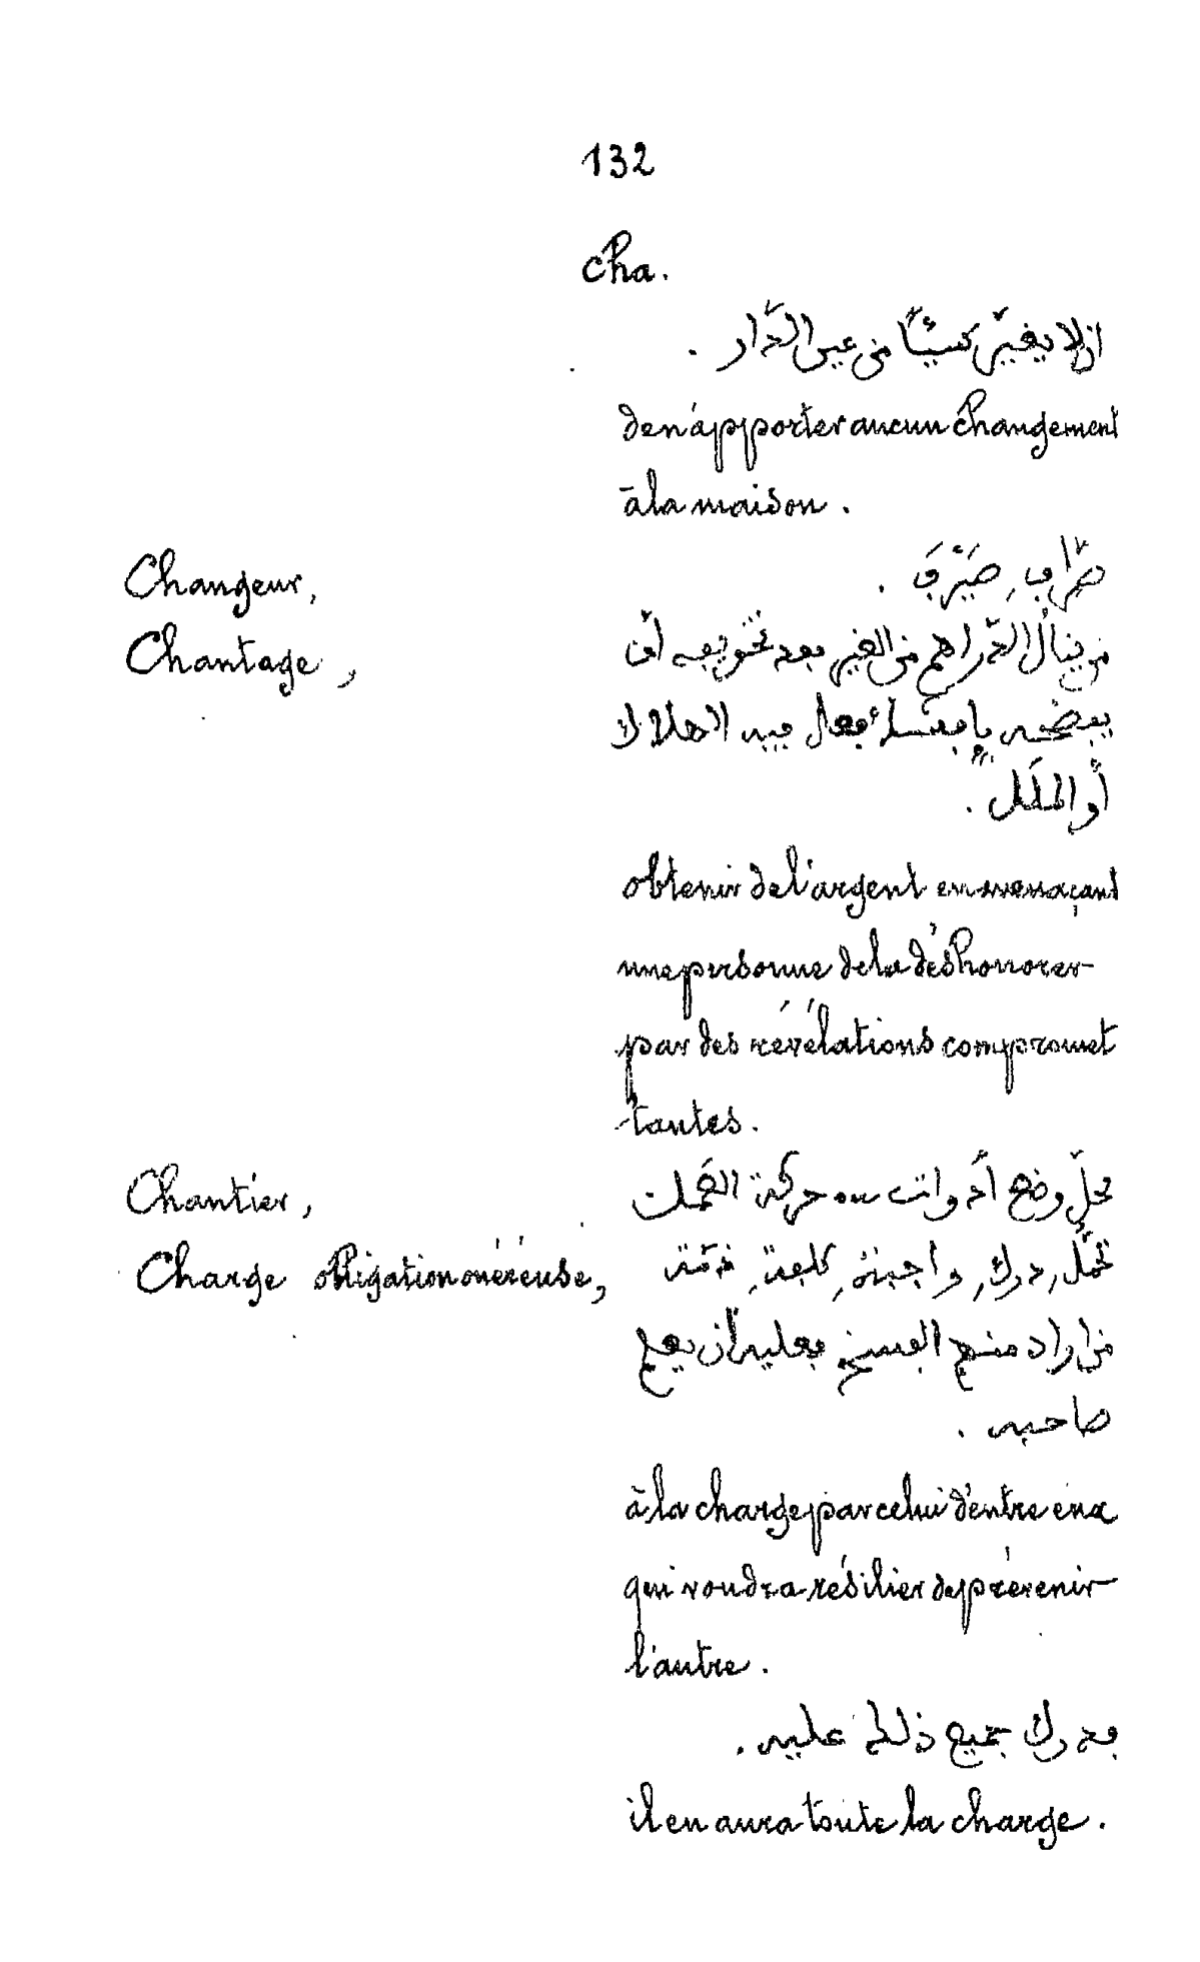 132
cha.
ان لا يغيّر شيئاً من عين الدّار .
de n'apporter aucun changement
à la maison .
Changeur, صرّاف, صَيْرَفِي .
Chantage , من ينال الدّراهم من الغير بعد تخويفه أن
يفضحه بإفشاء فعال فيه الهلاك
أو
obtenir de l'argent en menaçant
une personne de la déshonorer
par des révélations compromet
tantes .
Chantier , محلّ وضع أدوات حركة الخدمات
Charge obligation onéreuse, تحمّل, درك, واجبة, كلفة, ذمّة
من اراد منهم الفسخ فعليه أن يعلم
صاحبه .
à la charge par celui d'entre eux
qui voudra résilier de prévenir
l'autre .
فدرك جميع ذلك عليه .
il en aura toute la charge .